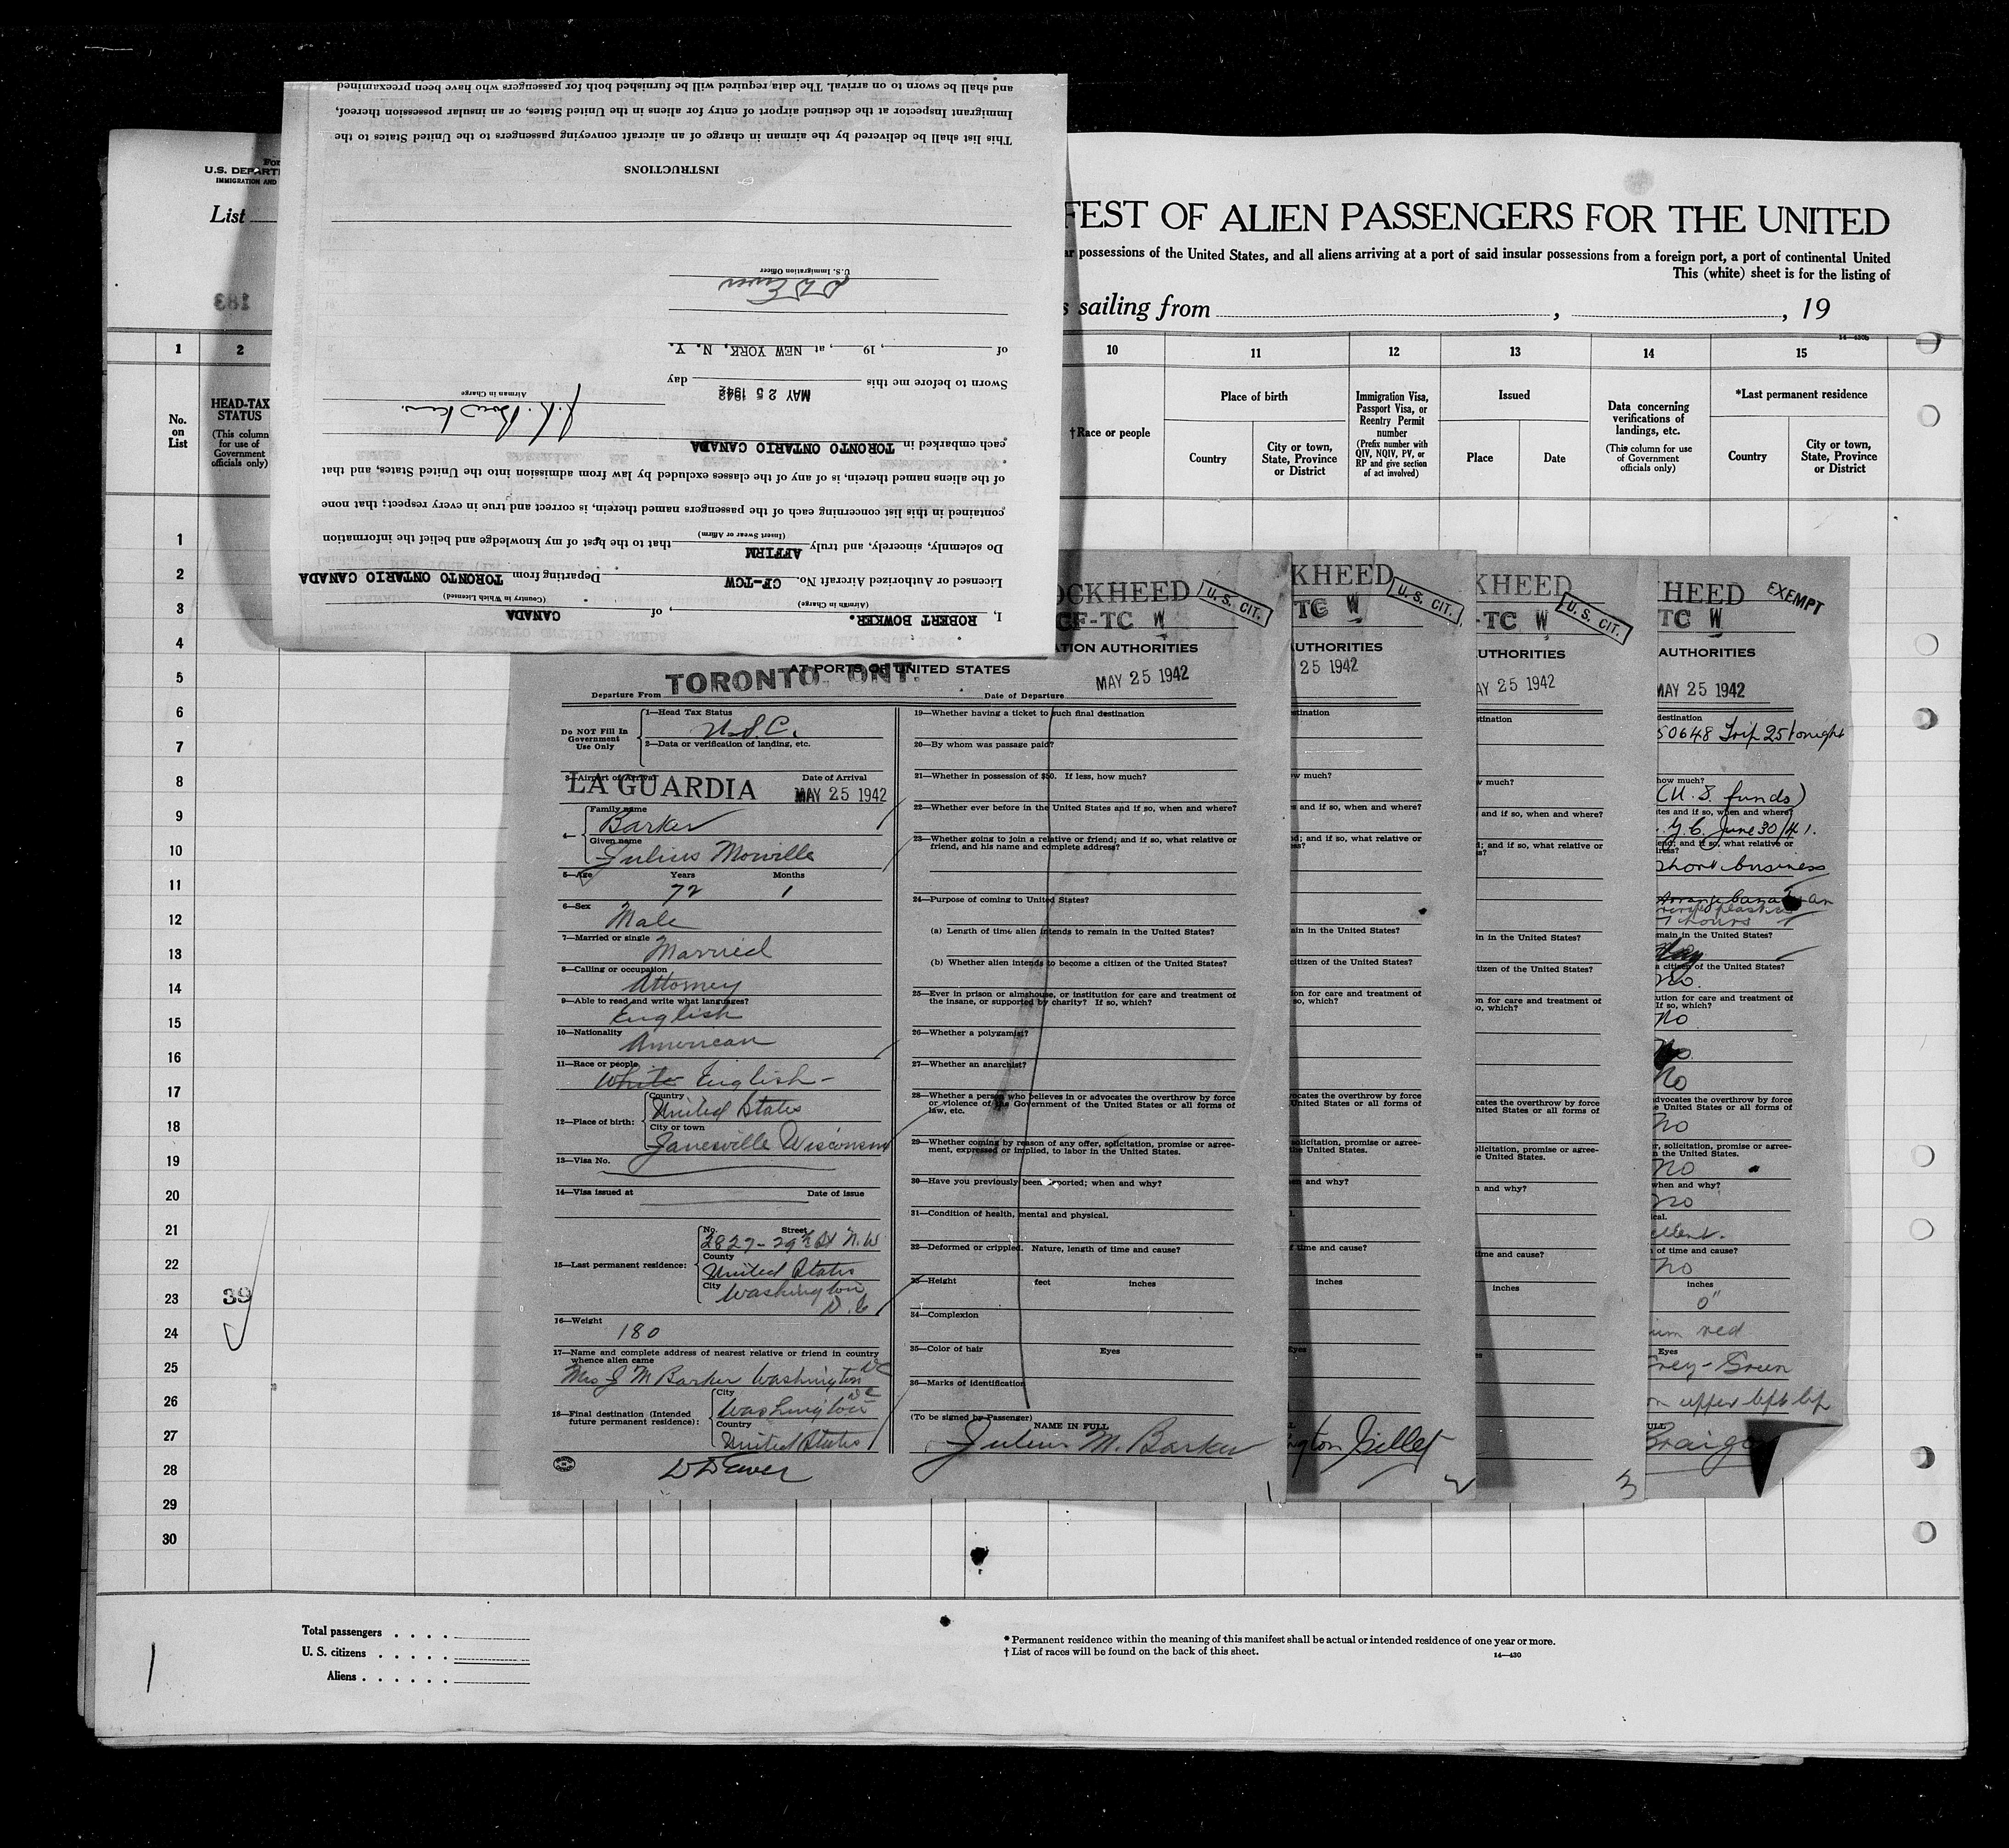 and shall be sworn to on arrival. The data required will be furnished both for passengers who have been preexamined
Immigrant Inspector at the destined airport of entry for aliens in the United States, or an insular possession thereof,
This list shall be delivered by the airman in charge of an aircraft conveying passengers to the United States to the
INSTRUCTIONS
U.S. Immigration Officer
of , 19 , at NEW YORK, N. Y.
Sworn to before me this MAY 25 1942 day
Airman in Charge
each embarked in TORONTO ONTARIO CANADA
of the aliens named therein, is of any of the classes excluded by law from admission into the United States, and that
contained in this list concerning each of the passengers named therein, is correct and true in every respect; that none
(Insert Swear or Affirm)
Do solemnly, sincerely, and truly AFFIRM that to the best of my knowledge and belief the information
Licensed or Authorized Aircraft No. CF-TCW Departing from TORONTO ONTARIO CANADA
(Airman in Charge) (Country in Which Licensed)
I, ROBERT BOWKER. , of CANADA
For
U.S. DEPART
IMMIGRATION AND
List
183
FEST OF ALIEN PASSENGERS FOR THE UNITED
possessions of the United States, and all aliens arriving at a port of said insular possessions from a foreign port, a port of continental United
This (white) sheet is for the listing of
sailing from , , 19
14—430b
1 2 10 11 12 13 14 15
No. on List
HEAD-TAX STATUS
(This column for use of Government officials only)
†Race or people
Place of birth
Country
City or town, State, Province or District
Immigration Visa, Passport Visa, or Reentry Permit number
(Prefix number with QIV, NQIV, PV, or RP and give section of act involved)
Issued
Place
Date
Data concerning verifications of landings, etc.
(This column for use of Government officials only)
*Last permanent residence
Country
City or town, State, Province or District
1
2
3
4
5
6
7
8
9
10
11
12
13
14
15
16
17
18
19
20
21
22
23 39
24
25
26
27
28
29
30
OCKHEED
U. S. CIT.
CF-TC W
ATION AUTHORITIES
AT PORTS OF UNITED STATES
Departure From TORONTO ONT. Date of Departure MAY 25 1942
Do NOT Fill In Government Use Only
1—Head Tax Status
U.S.C.
2—Data or verification of landing, etc.
3—Airport of Arrival Date of Arrival
LA GUARDIA MAY 25 1942
4—
Family name
Barker
Given name
Julius Morville
5—Age Years Months
72 1
6—Sex
Male
7—Married or single
Married
8—Calling or occupation
Attorney
9—Able to read and write what languages?
English
10—Nationality
American
11—Race or people
White English-
12—Place of birth:
Country
United States
City or town
Janesville Wisconsin
13—Visa No.
14—Visa issued at Date of issue
15—Last permanent residence:
No. Street
2827-29th St N.W
County
United States
City
Washington
D.C
16—Weight
180
17—Name and complete address of nearest relative or friend in country
whence alien came
Mrs J M Barker Washington DC
18—Final destination (Intended future permanent residence):
City
Washington DC
Country
United States
19—Whether having a ticket to such final destination
20—By whom was passage paid?
21—Whether in possession of $50. If less, how much?
22—Whether ever before in the United States and if so, when and where?
23—Whether going to join a relative or friend; and if so, what relative or
friend, and his name and complete address?
24—Purpose of coming to United States?
(a) Length of time alien intends to remain in the United States?
(b) Whether alien intends to become a citizen of the United States?
25—Ever in prison or almshouse, or institution for care and treatment of
the insane, or supported by charity? If so, which?
26—Whether a polygamist?
27—Whether an anarchist?
28—Whether a person who believes in or advocates the overthrow by force
or violence of the Government of the United States or all forms of
law, etc.
29—Whether coming by reason of any offer, solicitation, promise or agree-
ment, expressed or implied, to labor in the United States.
30—Have you previously been deported; when and why?
31—Condition of health, mental and physical.
32—Deformed or crippled. Nature, length of time and cause?
33—Height feet inches
34—Complexion
35—Color of hair Eyes
36—Marks of identification
(To be signed by Passenger)
NAME IN FULL
Julius M. Barker
1
KHEED
U. S. CIT.
TC W
UTHORITIES
25 1942
stination
w much?
s and if so, when and where?
d; and if so, what relative or
ss?
ain in the United States?
citizen of the United States?
ion for care and treatment of
so, which?
vocates the overthrow by force
United States or all forms of
solicitation, promise or agree-
the United States.
en and why?
l.
f time and cause?
inches
Eyes
ngton Gillet
2
KHEED
U. S. CIT.
-TC W
UTHORITIES
AY 25 1942
tination
w much?
and if so, when and where?
d; and if so, what relative or
s?
in in the United States?
tizen of the United States?
on for care and treatment of
o, which?
ocates the overthrow by force
nited States or all forms of
olicitation, promise or agree-
e United States.
n and why?
ime and cause?
inches
3
HEED
EXEMPT
TC W
AUTHORITIES
MAY 25 1942
destination
50648 Trip 25 tonight
how much?
(U.S. funds)
ates and if so, when and where?
June 30/41.
iend; and if so, what relative or
ress?
short business
hours
emain in the United States?
a citizen of the United States?
No.
ution for care and treatment of
If so, which?
No
No.
No
advocates the overthrow by force
e United States or all forms of
No
r, solicitation, promise or agree-
n the United States.
No
when and why?
No
ical.
ellent.
of time and cause?
No
inches
0"
ium red
Eyes
Grey-Green
on upper left lip
ULL
Total passengers
U. S. citizens
Aliens
* Permanent residence within the meaning of this manifest shall be actual or intended residence of one year or more.
† List of races will be found on the back of this sheet.
14—430